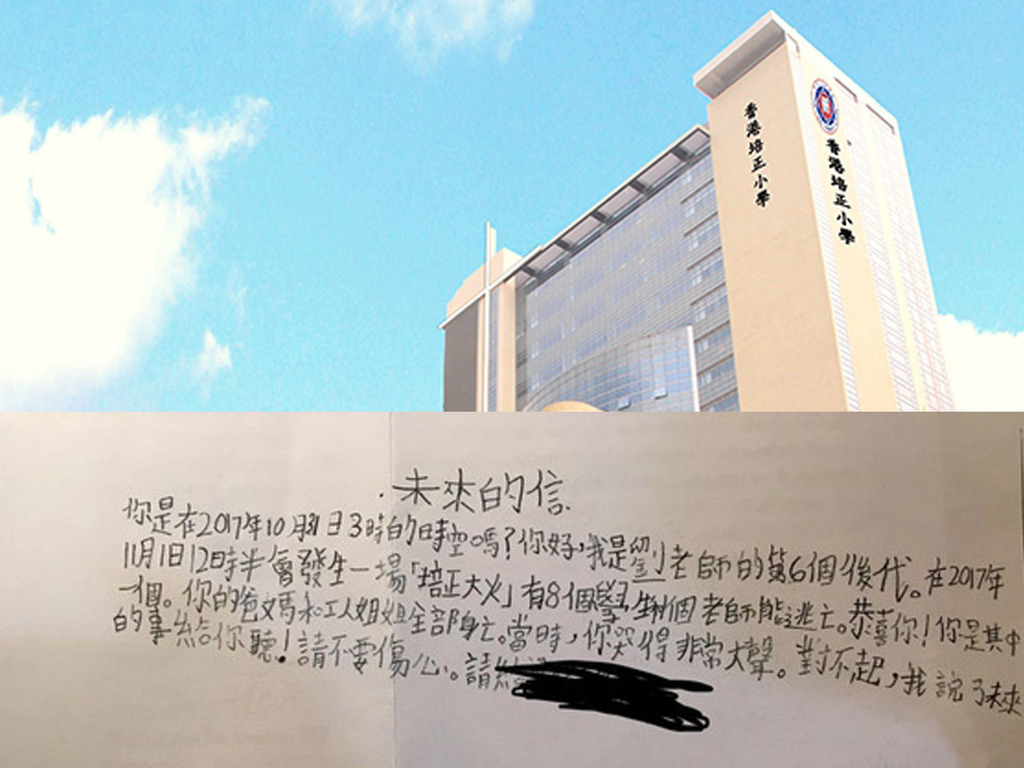 香港培正小學
香港培正小學
未來的信
你是在2017年10月31日3時的時空嗎?你好,我是劉老師的第6個後代。在2017年
11月1日12時半會發生一場「培正大火」有8個學生和個老師能逃亡。恭喜你!你是其中
一個。你的爸媽和工人姐姐全部身亡。當時,你哭得非常大聲。對不起,我說了未來
的事給你聽!請不要傷心。請